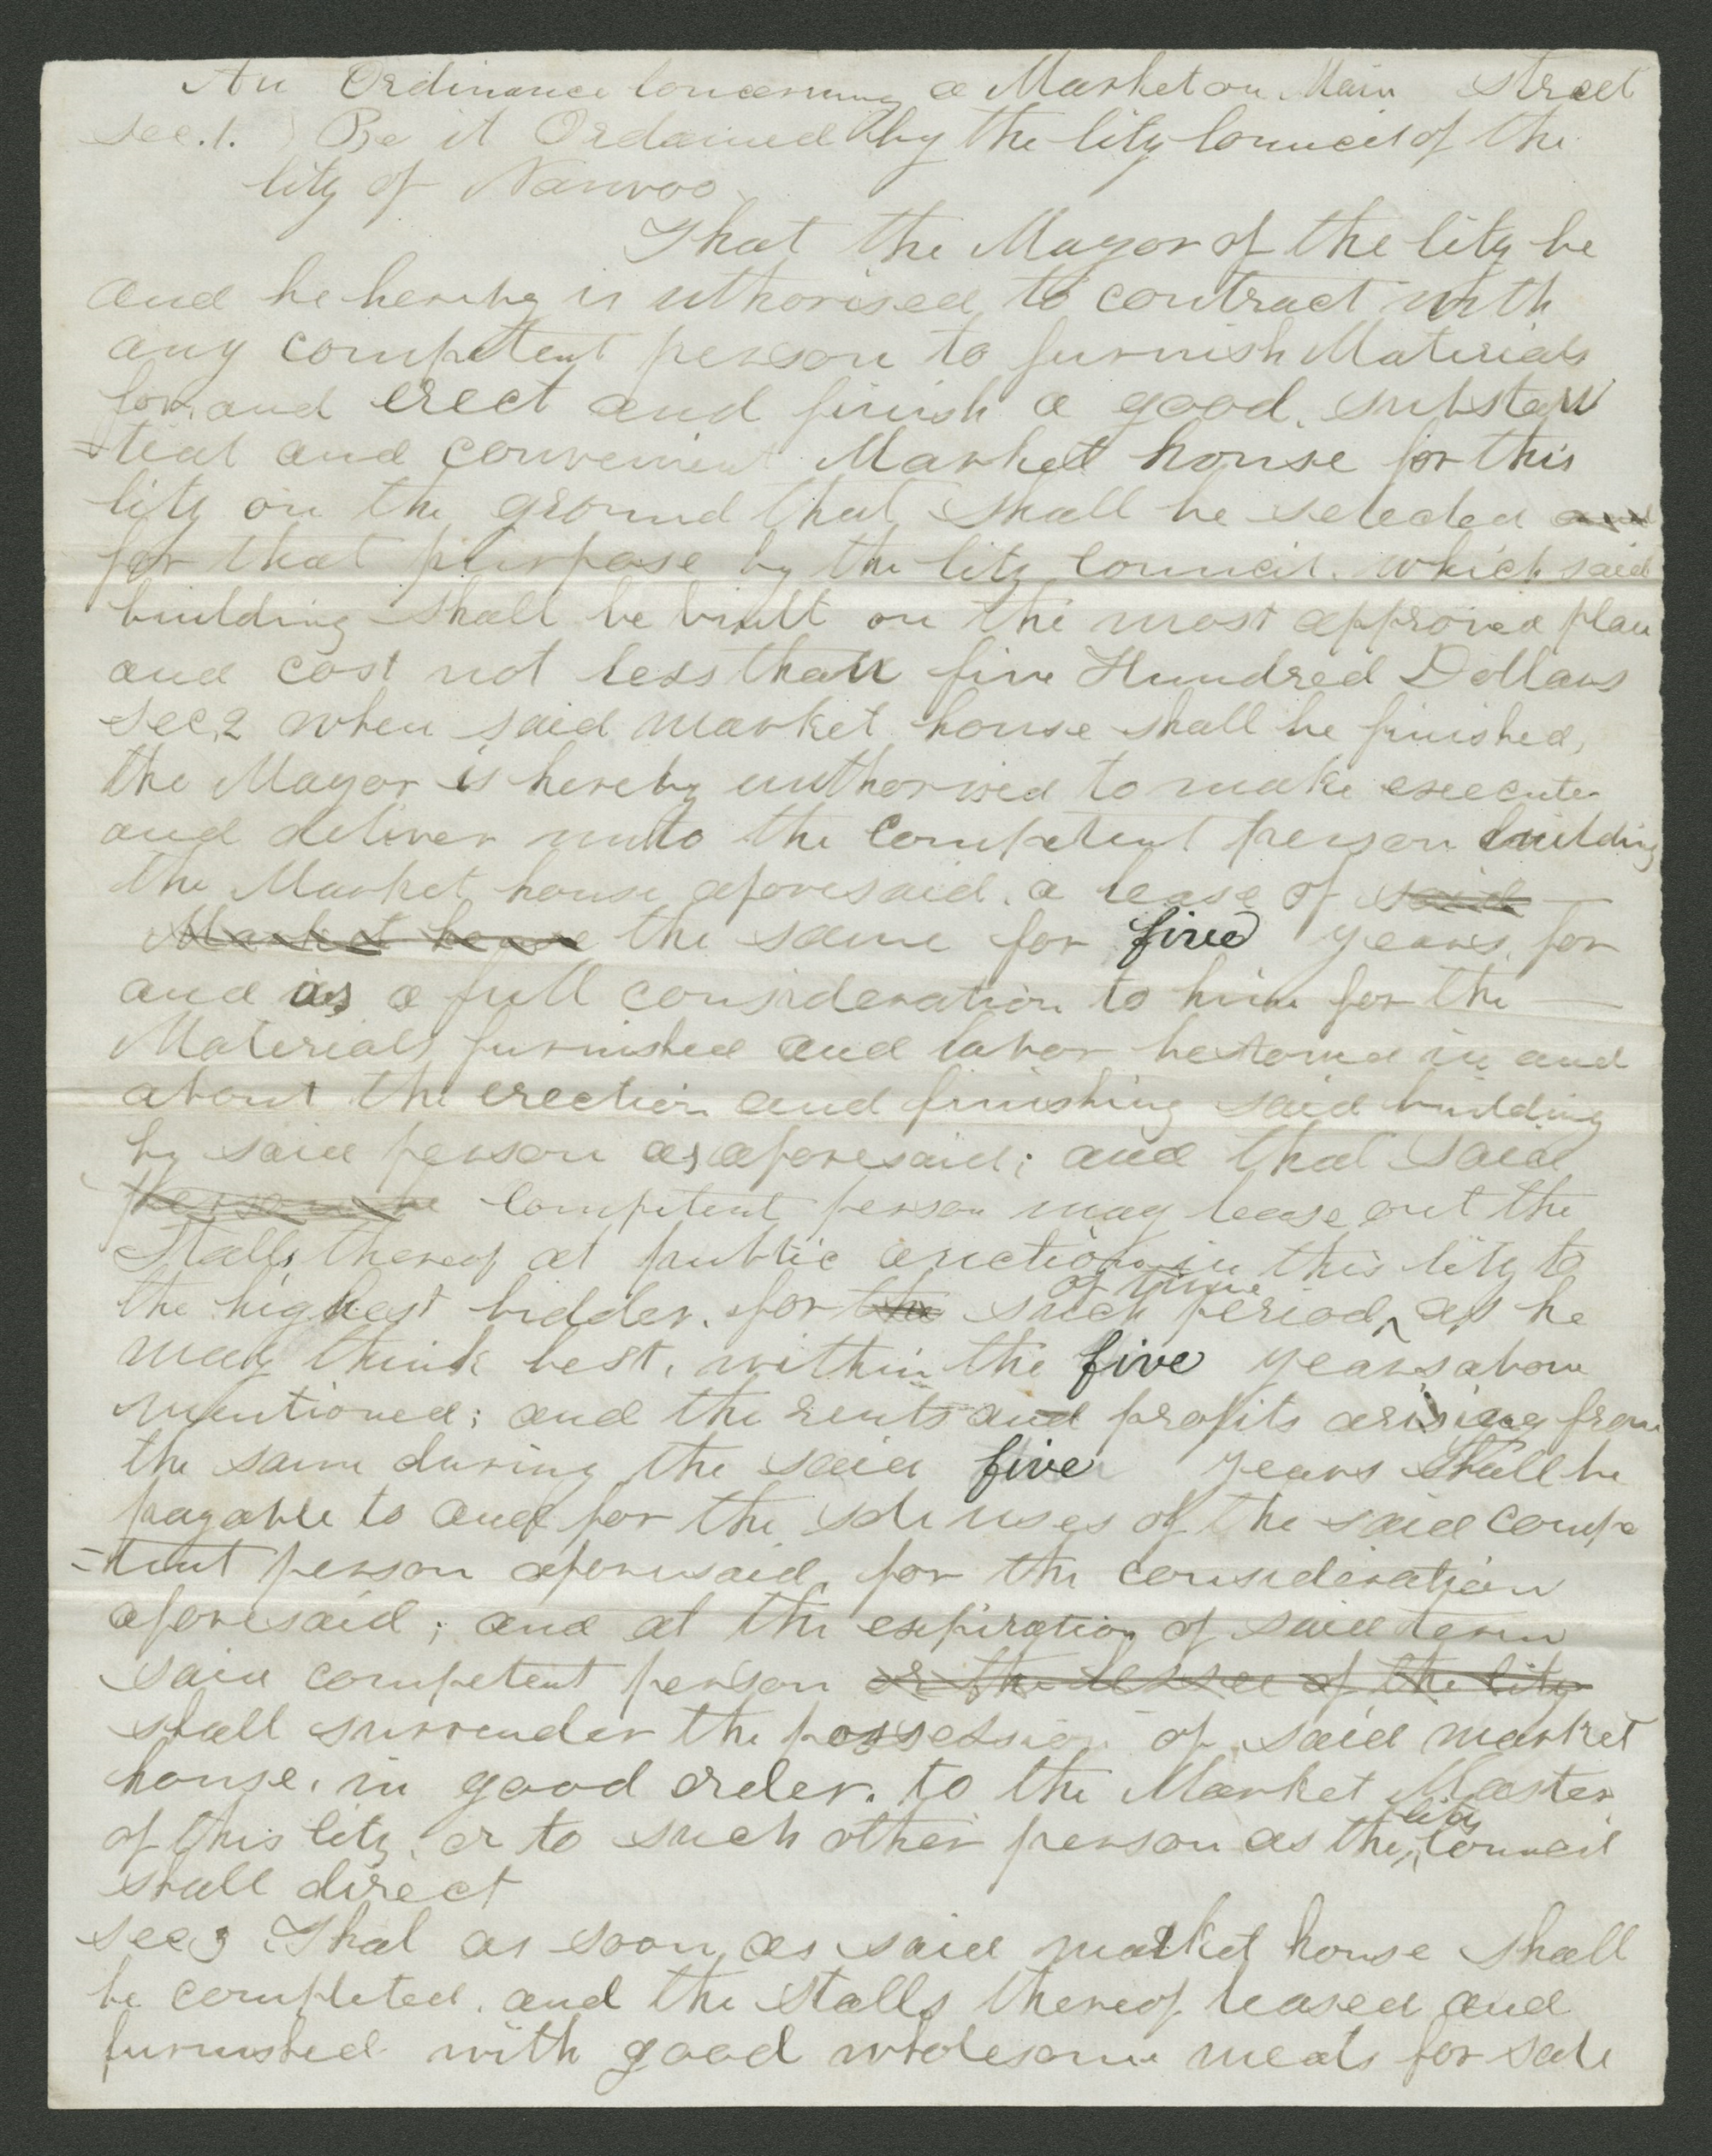 An Ordinance Concerning a Market on Main Street
Sec. 1. Be it Ordained by the City Council of the
City of Nauvoo.
That the Mayor of the City be
and he hereby is uthorised to contract with
any competent person to furnish Materials
for, and erect and finish a good, substan
=tial and convenient Market house for this
City on the ground that shall be selected and
for that purpose by the City Council. which said
building shall be built on the most approved plan
and cost not less than five Hundred Dollars
Sec. 2 when said market house shall be finished,
the Mayor is hereby authorised to make execute
and deliver unto the competent person building
the Market house aforesaid, a lease of said
Market house the same for five years, for
and as a full consideration to him for the
Materials furnished and labor bestowed in and
about the erection and finishing said building
by said person as aforesaid; and that said
person be competent person may lease out the
Stalls thereof at public auction in this City to
the highest bidder, for the such period ^ of time as he
may think best, within the five years above
mentioned; and the rents and profits arising from
the same during the said five years shall be
payable to and for the sole uses of the said compe
=tent person aforesaid, for the consideration
aforesaid; and at the expiration of said term
said competent person or the lessee of the City
shall surrender the possession of said market
house, in good order, to the Market Master
of this City, or to such other person as the ^ City Council
shall direct
Sec 3 That as soon as said market house shall
be completed, and the Stalls thereof leased and
furnished with good wholesome meats for sale